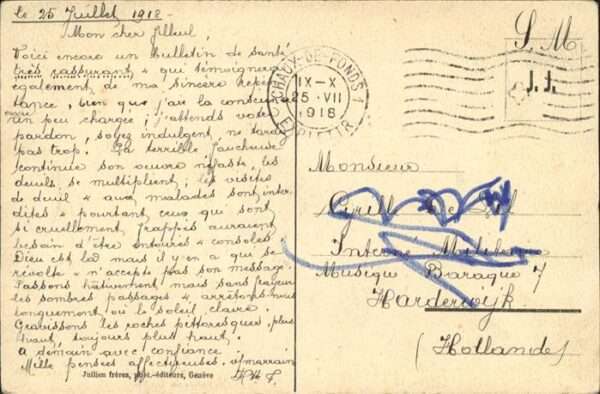 le 25 Juillet 1918 -
Mon cher filleul,
Voici encore un Bulletin de santé
très rassurant & qui témoignera
également de ma sincère repen-
tance, bien que j'aie la conscience
encore un peu chargée; j'attends votre
pardon, soyez indulgent, ne tardez
pas trop. La terrible faucheuse
continue son oeuvre néfaste, les
deuils se multiplient; les visites
de deuil & aux malades sont inter-
dites & pourtant ceux qui sont
si cruellement frappés auraient
besoin d'être entourés & consolés.
Dieu est là mais il y en a qui se
révolte & n'accepte pas son message.
Passons hâtivement mais sans frayeur
les sombres passages & arrêtons-nous
longuement où le soleil claire.
Gravissons les roches pittoresques, plus
haut, toujours plus haut.
A demain avec confiance.
Mille pensées affectueuses. v/marrain
Jullien frères, phot.-éditeurs, Genève
S. M.
J. J.
CHAUX-DE-FONDS 1
IX-X
25. VII
1918
Monsieur
Cyrill De
Interné Militaire
Musique Baraque 7
Harderwijk
(Hollande)